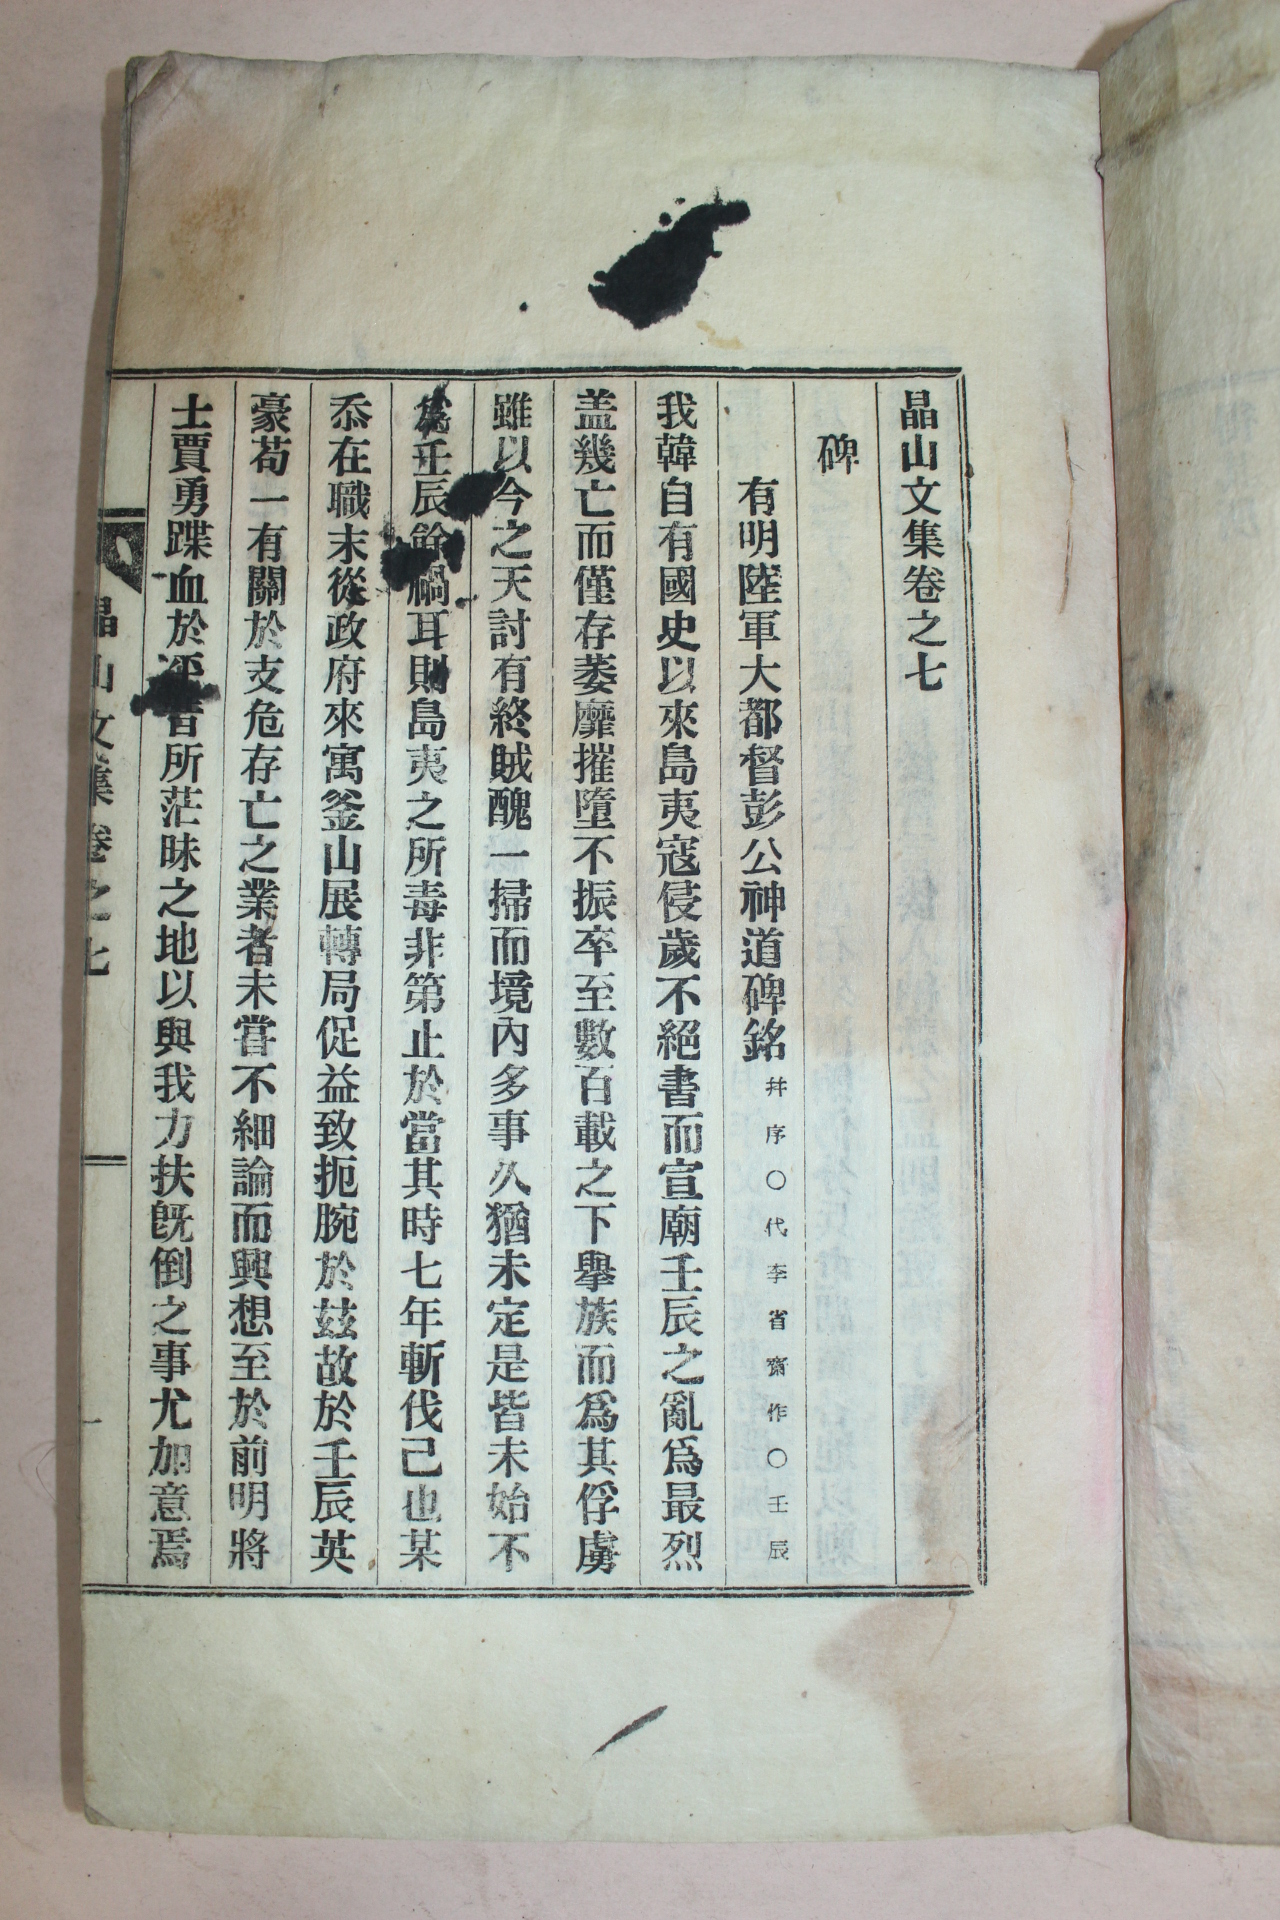 晶山文集卷之七
碑
有明陸軍大都督彭公神道碑銘 幷序○代李省齋作○壬辰
我韓自有國史以來島夷寇侵歲不絕書而宣廟壬辰之亂爲最烈
盖幾亡而僅存萎靡摧墮不振卒至數百載之下擧族而爲其俘虜
雖以今之天討有終賊醜一掃而境內多事久猶未定是皆未始不
爲壬辰餘禍耳則島夷之所毒非第止於當其時七年斬伐己也某
忝在職末從政府來寓釜山展轉局促益致扼腕於玆故於壬辰英
豪苟一有關於支危存亡之業者未嘗不細論而興想至於前明將
士賈勇蹀血於平昔所茫昧之地以與我力扶旣倒之事尤加意焉
晶山文集卷之七
一